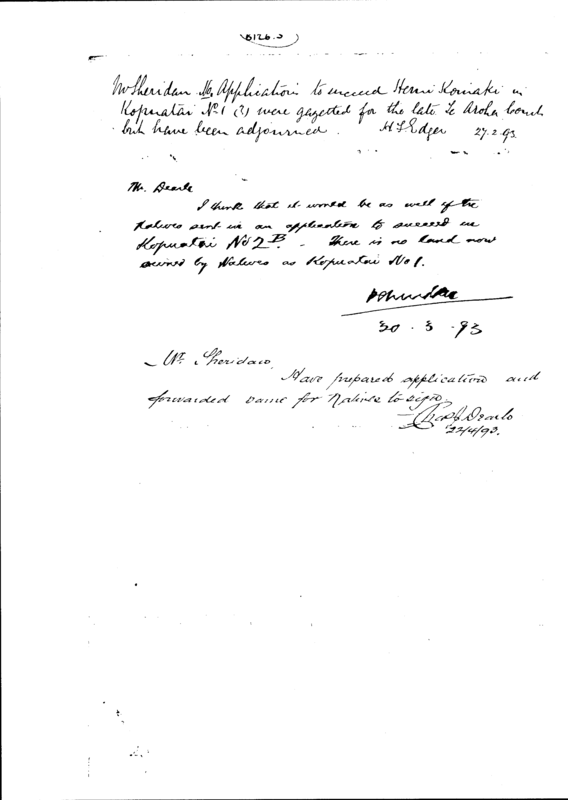 B126.3
Mr Sheridan Application to succeed Hemi Komaki in
Kopuatai No 1 (?) were gazetted for the late Te Aroha Court
but have been adjourned. H F Edger 27.2.93
Mr. Dearle
I think that it would be as well if the
Natives sent in an application to succeed in
Kopuatai No 2B. There is no land now
owned by Natives as Kopuatai No 1.
30.3.93
Mr. Sheridan,
Have prepared application and
forwarded same for Natives to sign
Dearle
22/4/93.